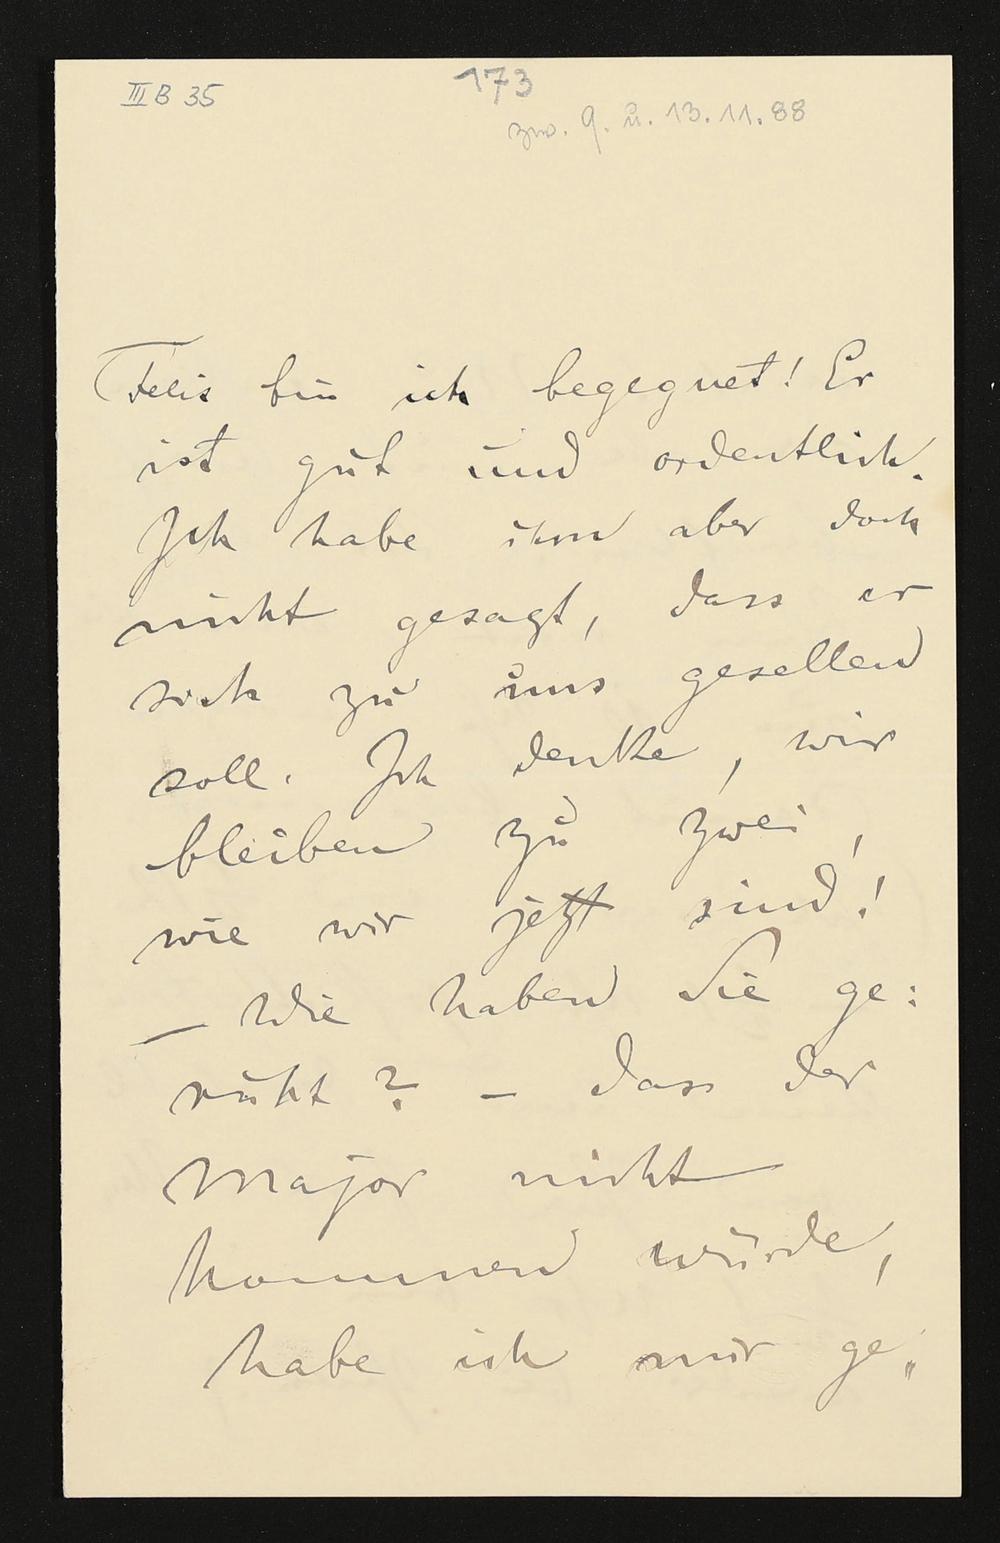 III B 35
173
zw. 9. u. 13. 11. 88
Felix bin ich begegnet! Er
ist gut und ordentlich.
Ich habe ihm aber doch
nicht gesagt, dass er
sich zu uns gesellen
soll. Ich denke, wir
bleiben zu zwei,
wie wir jetzt sind!
— Wie haben Sie ge:
ruht? — dass der
Major nicht
kommen würde,
habe ich mir ge„